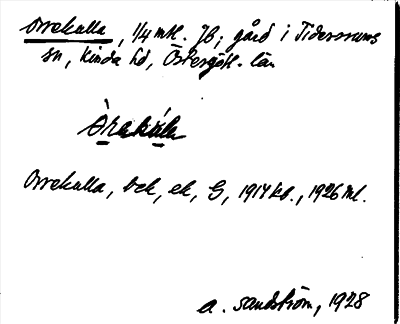 Orrekulla, 1/4 mtl. Jb, gård i Tidersrums
sn, Kinda hd, Östergötl. län
Orrekulla, Eek, ek, G, 1917 kb., 1926 ml.
A. Sandström, 1928